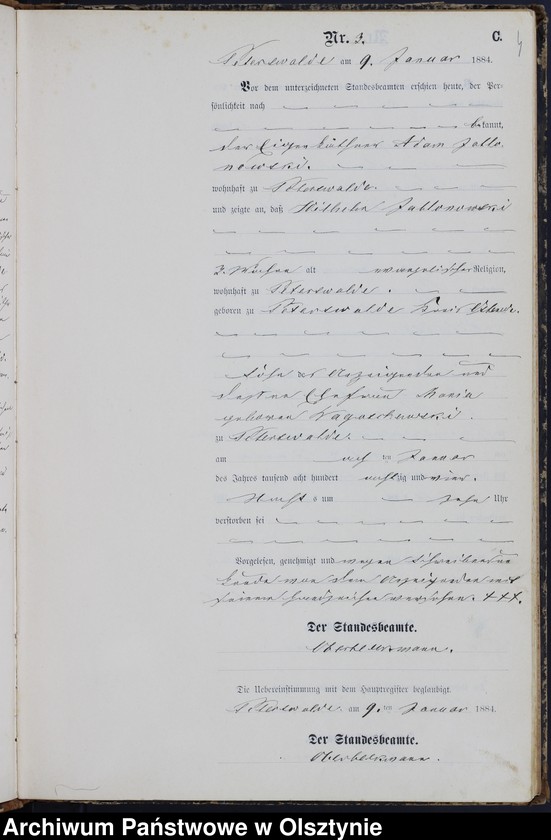 Nr. 3. C. 4
Peterswalde am 9. Januar 1884.
Vor dem unterzeichneten Standesbeamten erschien heute, der Per-
sönlichkeit nach
bekannt,
der Eigenkäthner Adam Jablo-
nowski.
wohnhaft zu Peterswalde.
und zeigte an, daß Wilhelm Jablonowski
3 Wochen alt evangelischer Religion,
wohnhaft zu Peterswalde.
geboren zu Peterswalde Kreis Osterode.
Sohn des Anzeigenden und
dessen Ehefrau Maria
geborenen
zu Peterswalde.
am acht ten Januar
des Jahres tausend acht hundert achtzig und vier.
Nachts um zehn Uhr
verstorben sei
Vorgelesen, genehmigt und wegen Schreibensun-
kunde von dem Anzeigenden mit
seinem Handzeichen versehen. +++.
Der Standesbeamte.
Die Uebereinstimmung mit dem Hauptregister beglaubigt.
Peterswalde am 9. ten Januar 1884.
Der Standesbeamte.
Archiwum Państwowe w Olsztynie